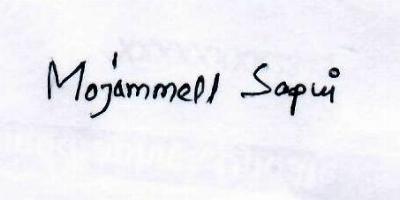 Mojammell Saqui